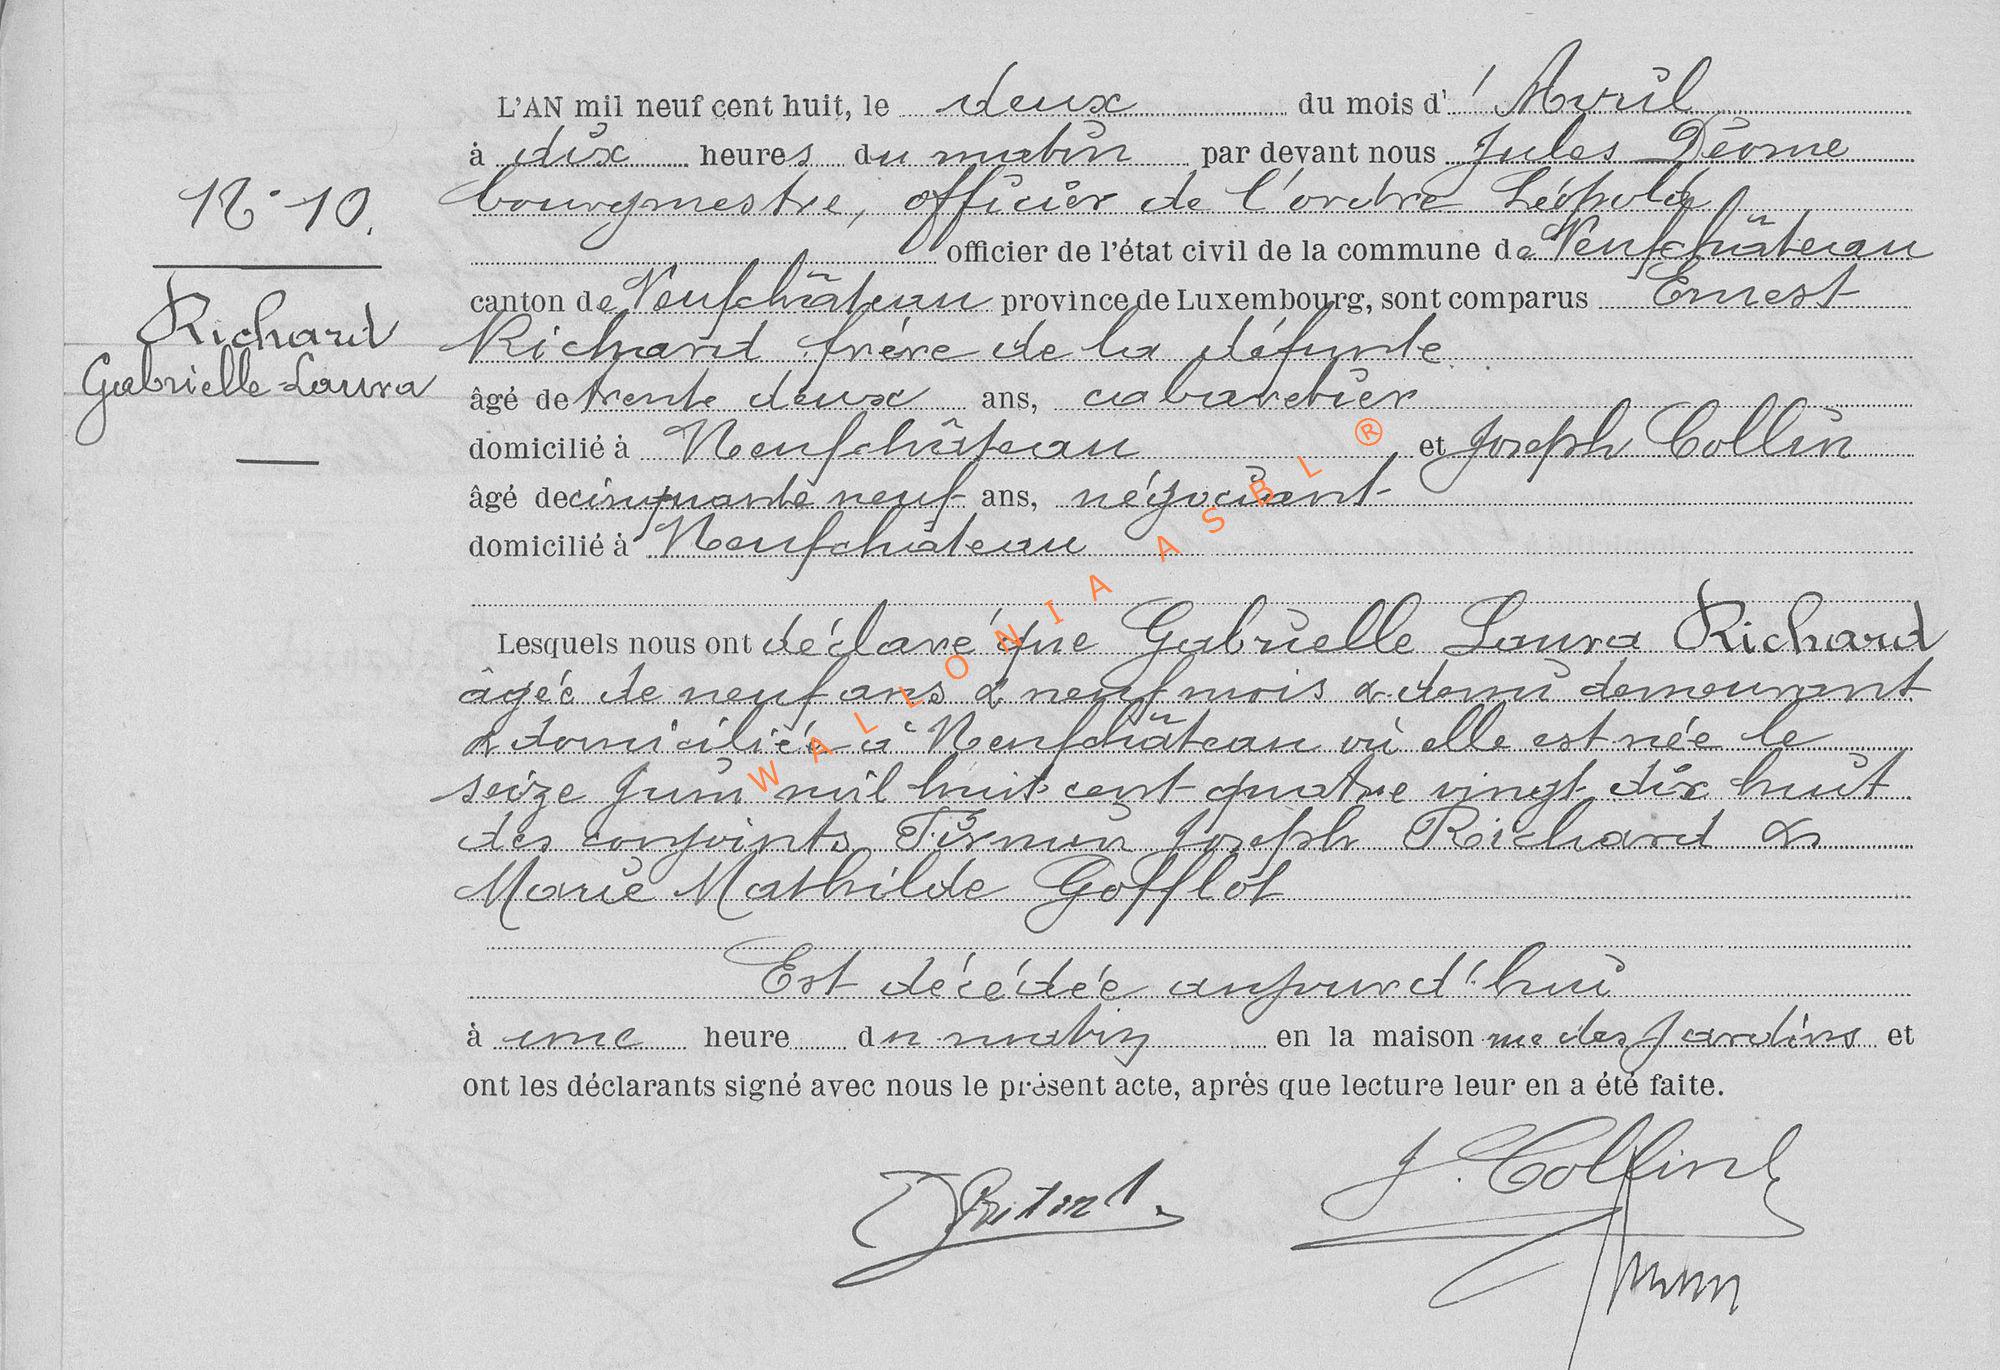 L'AN mil neuf cent huit, le deux du mois d' Avril
à dix heures du matin par devant nous Jules Déome
bourgmestre, officier de l'ordre Léopold
officier de l'état civil de la commune de Neufchâteau
N° 10.
canton de Neufchâteau province de Luxembourg, sont comparus Ernest
Richard
Gabrielle-Laura
Richard frère de la défunte
âgé de trente deux ans, cabaretier
domicilié à Neufchâteau et Joseph Collin
âgé de cinquante neuf ans, négociant
domicilié à Neufchâteau
Lesquels nous ont déclaré que Gabrielle Laura Richard
âgée de neuf ans & neuf mois & demi demeurant
& domiciliée à Neufchâteau où elle est née le
seize Juin mil huit cent quatre vingt dix huit
des conjoints Firmin Joseph Richard &
Marie Mathilde Gofflot
Est décédée aujourd'hui
à une heure du matin en la maison rue des Jardins et
ont les déclarants signé avec nous le présent acte, après que lecture leur en a été faite.
J. Collin
WALLONIA ASBL ®